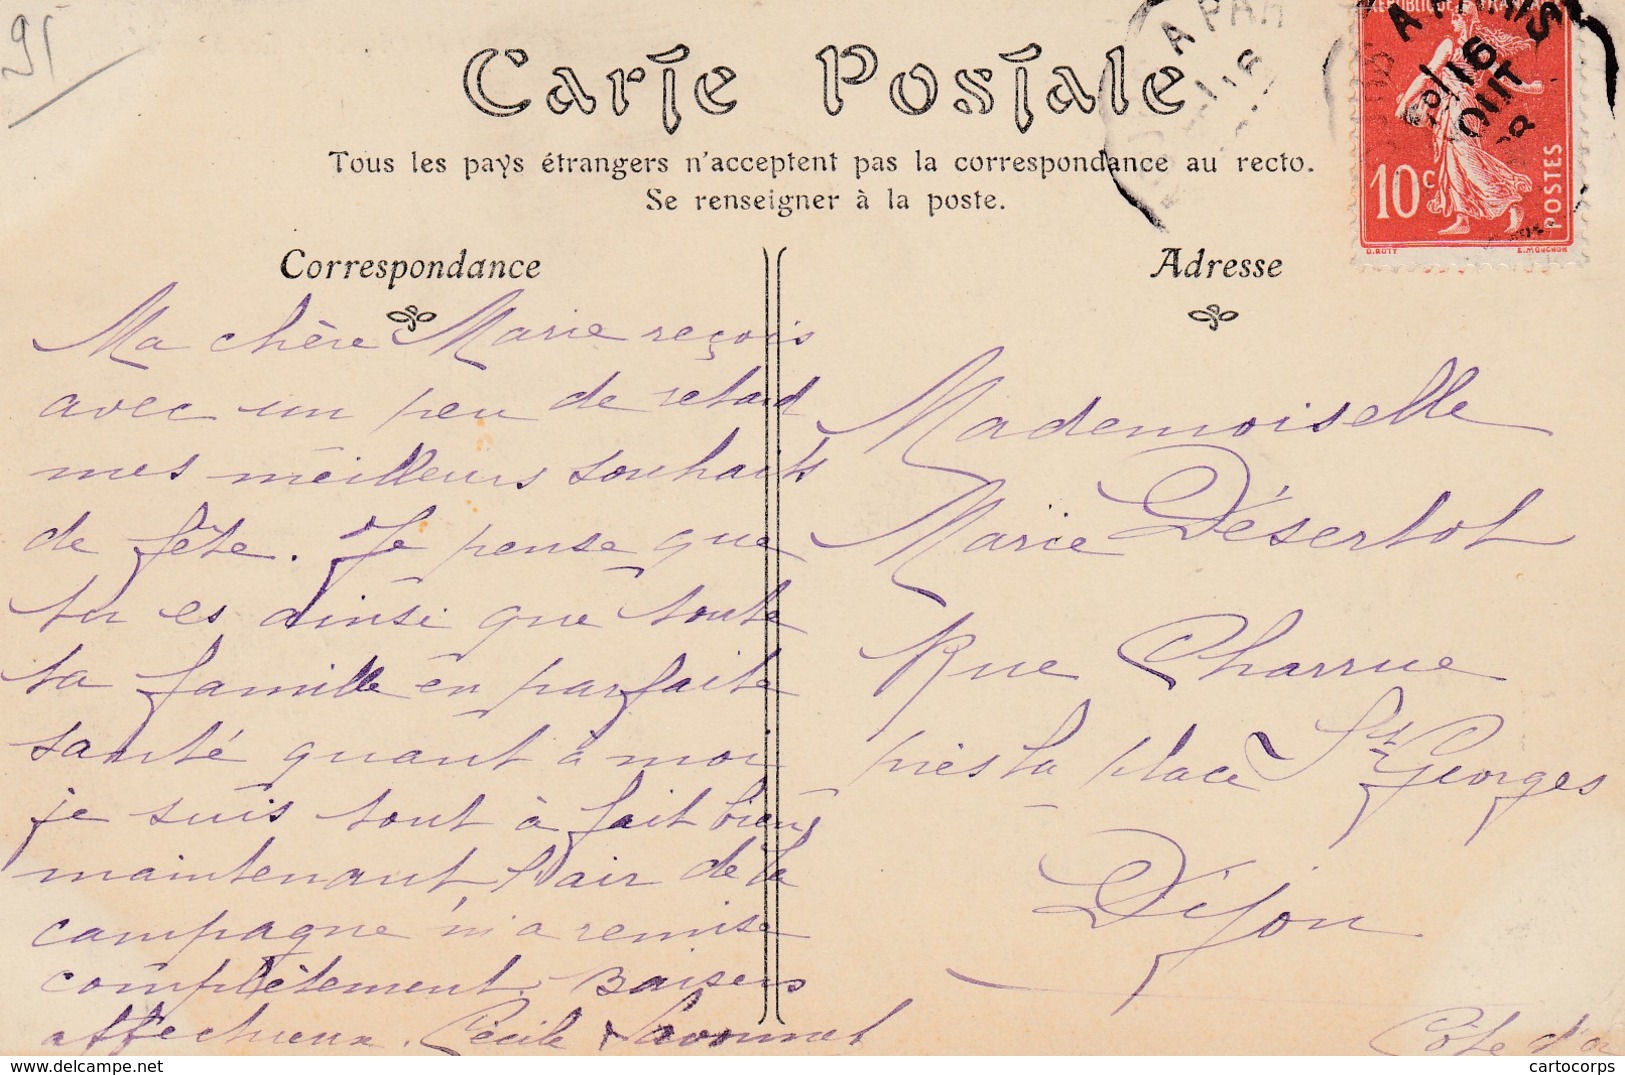 95
Carte Postale
Tous les pays étrangers n'acceptent pas la correspondance au recto.
Se renseigner à la poste.
Correspondance
Ma chère Marie reçois
avec un peu de retard
mes meilleurs souhaits
de fête. Je pense que
tu es ainsi que toute
ta famille en parfaite
santé quant à moi
je suis tout à fait bien,
maintenant l'air de la
campagne m'a remise
complètement. Baisers
affectueux. Cécile
Adresse
Mademoiselle
Marie Désertot
Rue Charrue
près la place St Georges
Dijon
Côte d'o
REPUBLIQUE FRANÇAISE
10c
POSTES
O. ROTY
E. MOUCHON
A PARIS
16
AOUT
A PAR
cartocorps